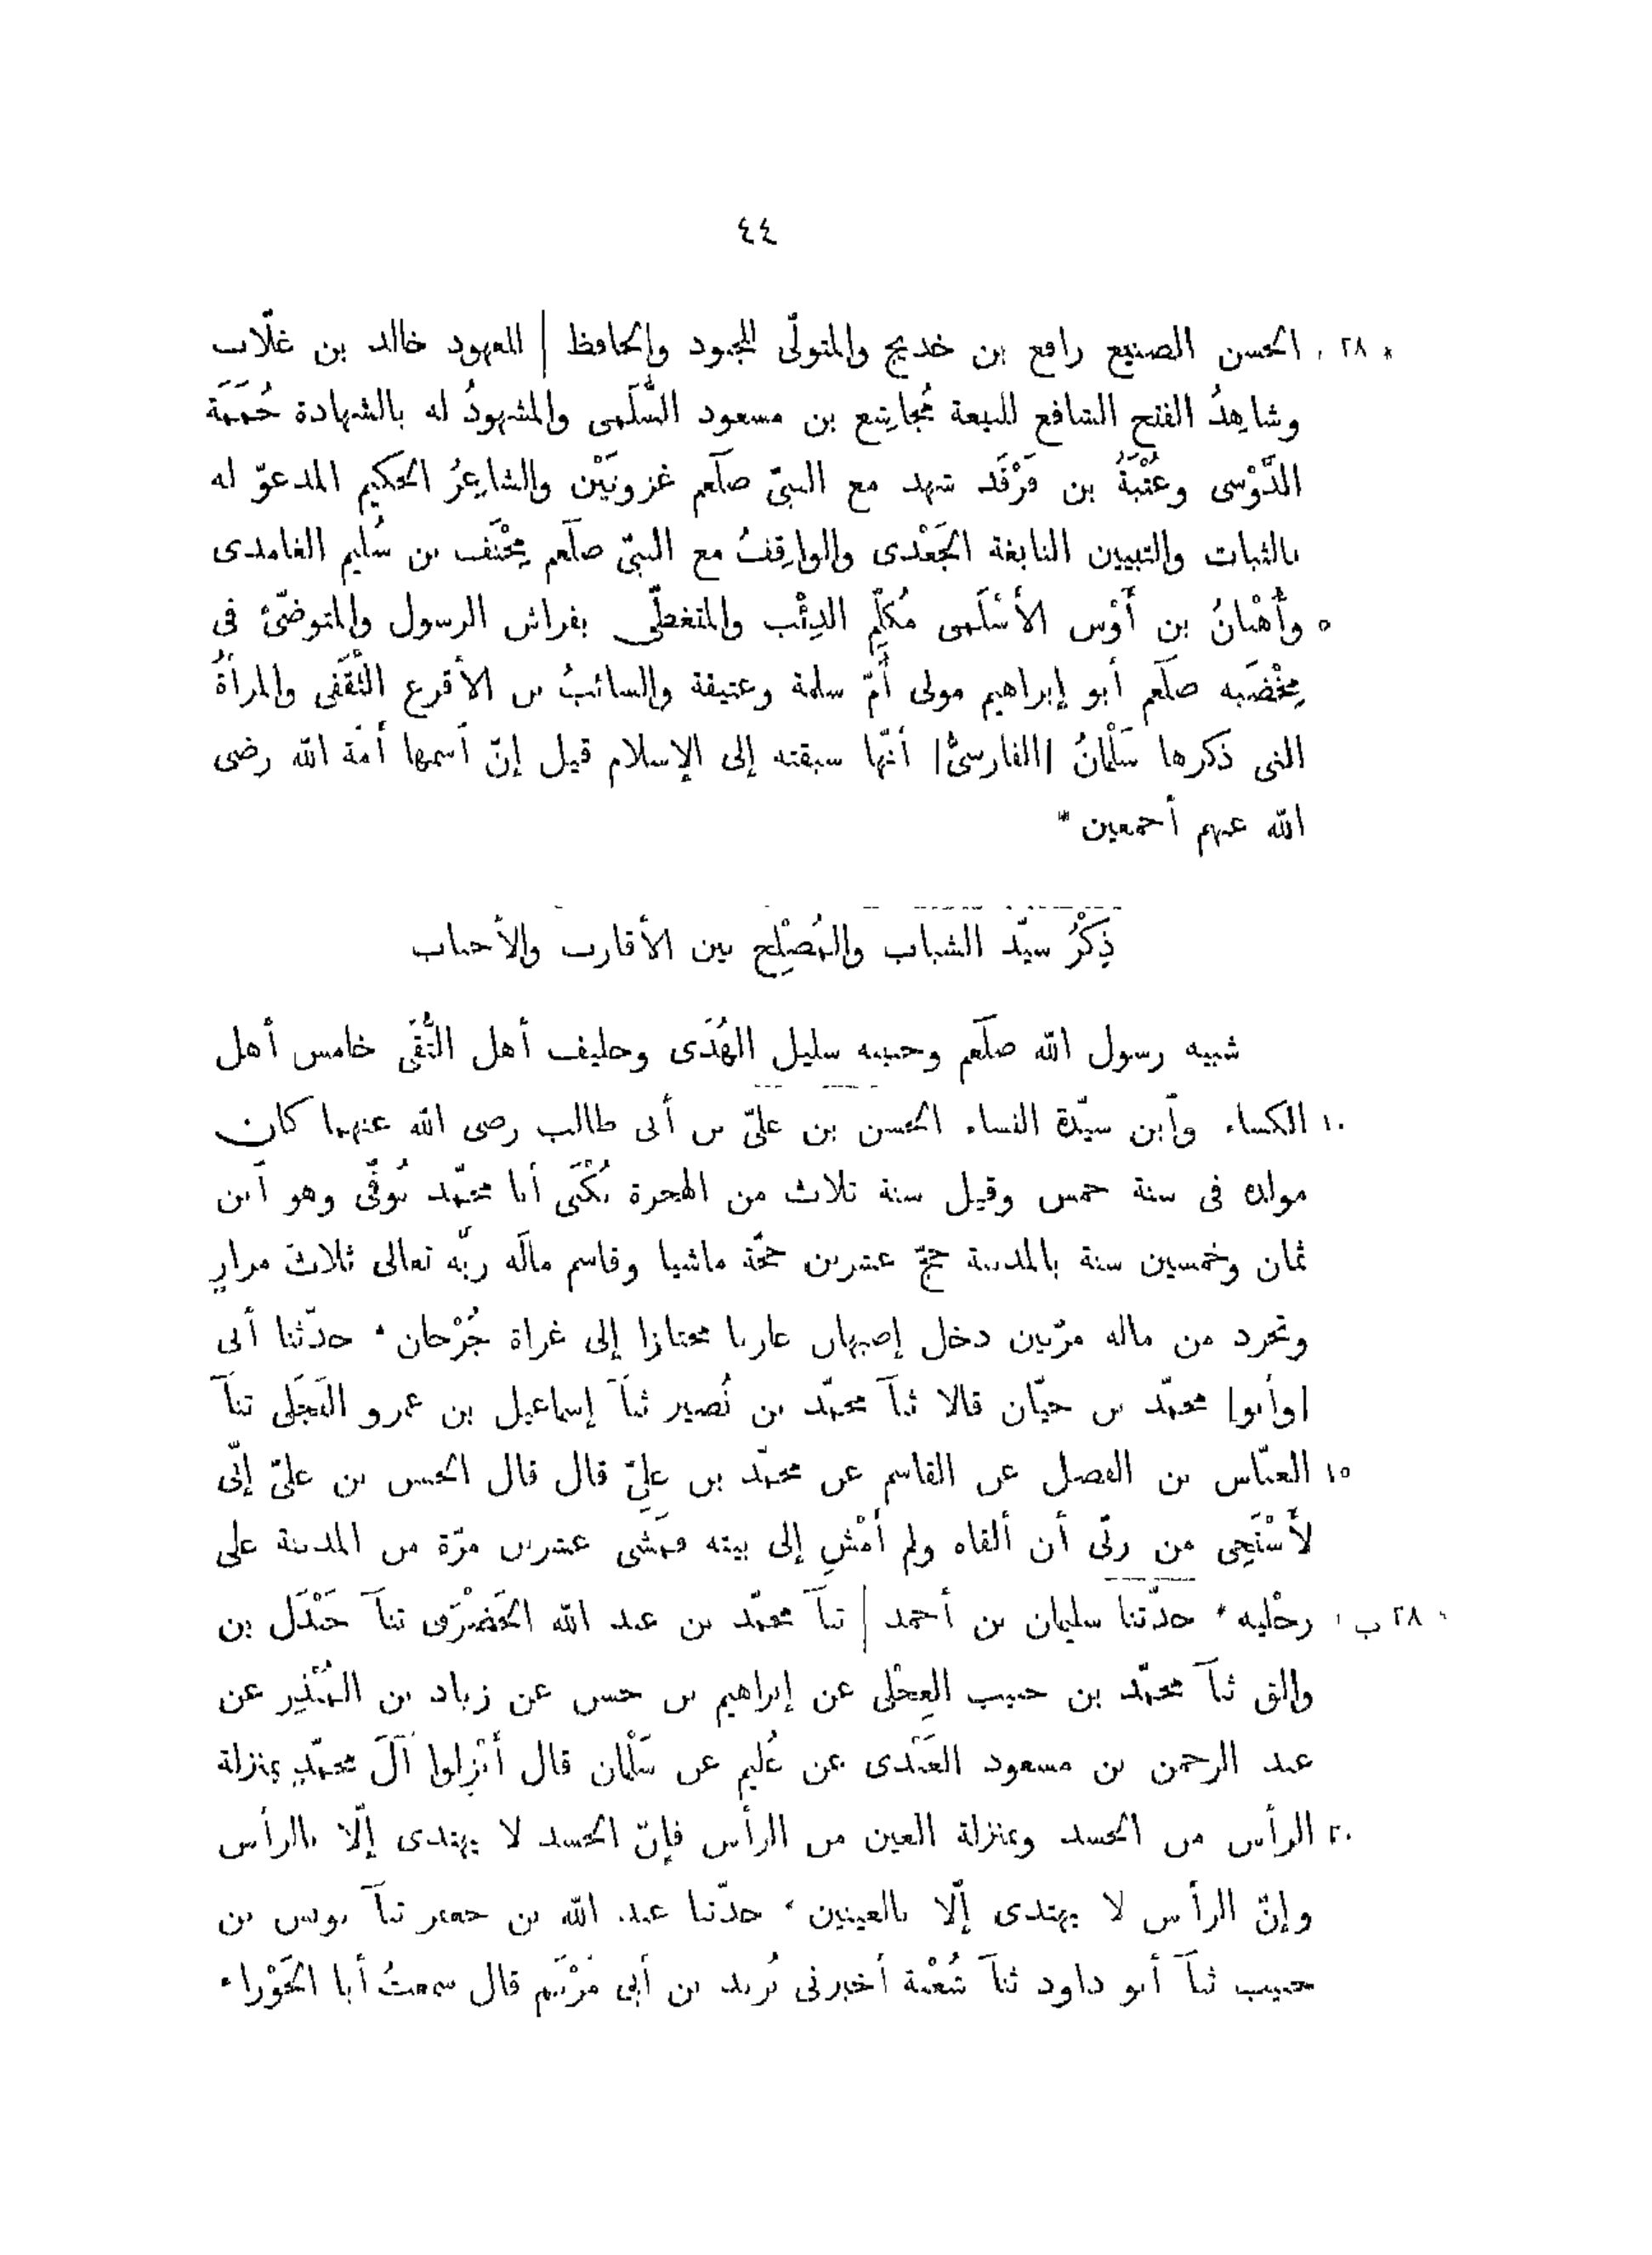 ٤٤
* ٢٨ ا الحسن الصنيع رافع بن خديج والمتولّى للجبود والحافظ | للعهود خالد بن غلّاب
وشاهِدُ الفتح الشافع للبيعة مُجاشِع بن مسعود السُّلَمى والمشهودُ له بالشهادة حُمَمَة
الدَّوْسى وعُتْبَةُ بن فَرْقَد شهد مع النبىّ صلّعم غزوتَيْن والشاعِرُ الحكيم المدعوّ له
بالثبات والتبيين النابغة الجَعْدى والواقِفُ مع النبىّ صلّعم مِخْنَف بن سُليم الغامدى
٥ وأُهْبانُ بن أَوْس الأَسْلَمى مُكلِّم الذِئْب والمتغطّى بفراش الرسول والمتوضّئ فى
مِخْضَبه صلّعم أبو إبراهيم مولى أُمّ سلمة وعتيقة والسائبُ بن الأقرع الثَقَفى والمرأةُ
التى ذكرها سَلْمانُ [الفارسىُّ] أنّها سبقته إلى الإسلام قيل إنّ ٱسمها أَمَة الله رضى
الله عنهم أجمعين *
ذِكْرُ سيّد الشباب والمُصْلِح بين الأقارب والأحباب
شبيه رسول الله صلّعم وحبيبه سليل الهُدَى وحليف أهل التُّقَى خامس أهل
١٠ الكساء وٱبن سيّدة النساء الحسن بن علىّ بن أبى طالب رضى الله عنهما كان
مولده فى سنة خمس وقيل سنة ثلاث من الهجرة يُكْنَى أبا محمّد تُوفّى وهو ٱبن
ثمان وخمسين سنة بالمدينة حجّ عشرين حجّة ماشيا وقاسم مالَه ربّه تعالى ثلاث مرارٍ
وتجرد من ماله مرّتين دخل إصبهان غازيا مجتازا إلى غزاة جُرْجان * حدّثنا أبى
[وأبو] محمّد بن حيّان قالا ثنا محمّد بن نُصير ثنا إسماعيل بن عمرو البَجَلى ثنا
١٥ العبّاس بن الفضل عن القاسم عن محمّد بن علىّ قال قال الحسن بن علىّ إنّى
لأَسْتَحِى من ربّى أن ألقاه ولم أَمْشِ إلى بيته فمَشى عشرين مرّة من المدينة على
* ٢٨ ب رجْليه * حدّثنا سليمان بن أحمد | ثنا محمّد بن عبد الله الحَضْرَمى ثنا جَنْدَل بن
والق ثنا محمّد بن حبيب العِجْلى عن إبراهيم بن حسن عن زياد بن المُنْذِر عن
عبد الرحمن بن مسعود العَبْدى عن عُليم عن سَلْمان قال أَنْزِلوا آلَ محمّدٍ بمنزلة
٢٠ الرأس من الجسد وبمنزلة العين من الرأس فإنّ الجسد لا يهتدى إلّا بالرأس
وإنّ الرأس لا يهتدى إلّا بالعينين * حدّثنا عبد الله بن جعفر ثنا يونس بن
حبيب ثنا أبو داود ثنا شُعْبة أخبرنى بُريد بن أبى مَرْيَم قال سمعتُ أبا الحَوْراء